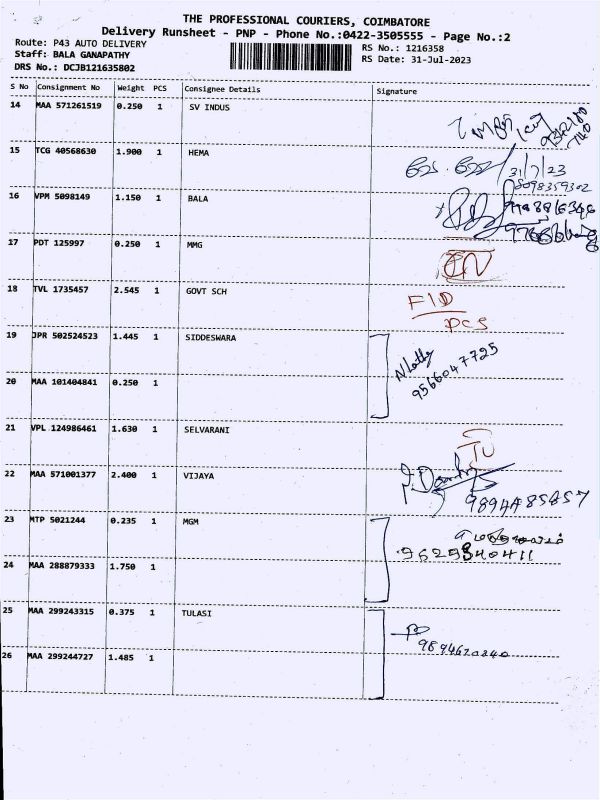 THE PROFESSIONAL COURIERS, COIMBATORE
Delivery Runsheet - PNP - Phone No.:0422-3505555 - Page No.:2
Route: P43 AUTO DELIVERY
Staff: BALA GANAPATHY
DRS No.: DCJB121635802
RS No.: 1216358
RS Date: 31-Jul-2023
S No Consignment No Weight PCS Consignee Details Signature
14 MAA 571261519 0.250 1 SV INDUS
15 TCG 40568630 1.900 1 HEMA 31/7/23
8098359302
16 VPM 5098149 1.150 1 BALA
17 PDT 125997 0.250 1 MMG
18 TVL 1735457 2.545 1 GOVT SCH FID
PCS
19 JPR 502524523 1.445 1 SIDDESWARA
9566047725
20 MAA 101404841 0.250 1
21 VPL 124986461 1.630 1 SELVARANI
22 MAA 571001377 2.400 1 VIJAYA
9894A85857
23 MTP 5021244 0.235 1 MGM
9629840411
24 MAA 288879333 1.750 1
25 MAA 299243315 0.375 1 TULASI
9894620840
26 MAA 299244727 1.485 1